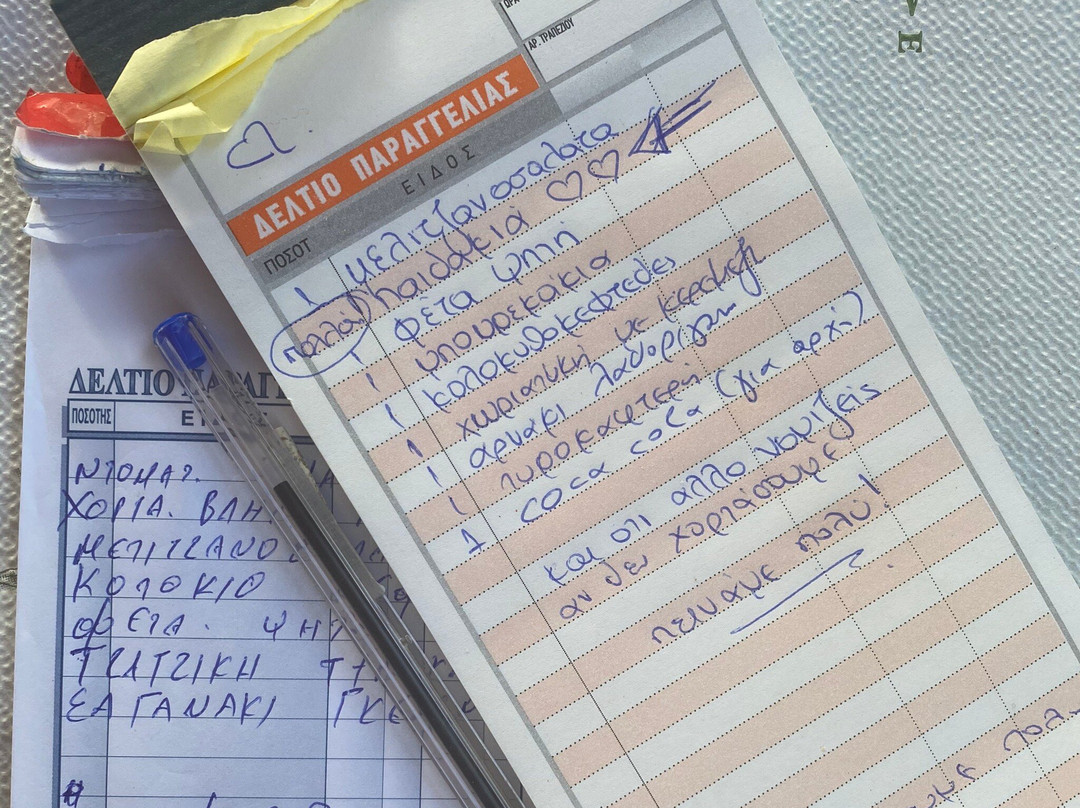 ΑΡ. ΤΡΑΠΕΖΙΟΥ
ΔΕΛΤΙΟ ΠΑΡΑΓΓΕΛΙΑΣ
ΠΟΣΟΤ ΕΙΔΟΣ
1 μελιτζανοσαλατα
πολλά! παιδάκιά
1 φέτα ψητή
1 μπουρεκάκια
1 κολοκυθοκεφτεδες
1 χωριατική με κεραμιδι
1 αρνάκι λαδορίγανη
1 τυροκαφτερη
1 coca cola (για αρχή)
και οτι αλλο νομιζεις
αν δεν χορτάσουμε
πεινάμε πολυ!
ΔΕΛΤΙΟ
ΠΟΣΟΤΗΣ
ΝΤΟΜΑΤ.
ΧΟΡΙΑ. ΒΛΗ
ΜΕΛΙΤΖΑΝΟ
ΚΟΛΟΚΙΘ
ΦΕΤΑ. ΨΗΤ
ΤΖΑΤΖΙΚΗ
ΣΑΓΑΝΑΚΙ